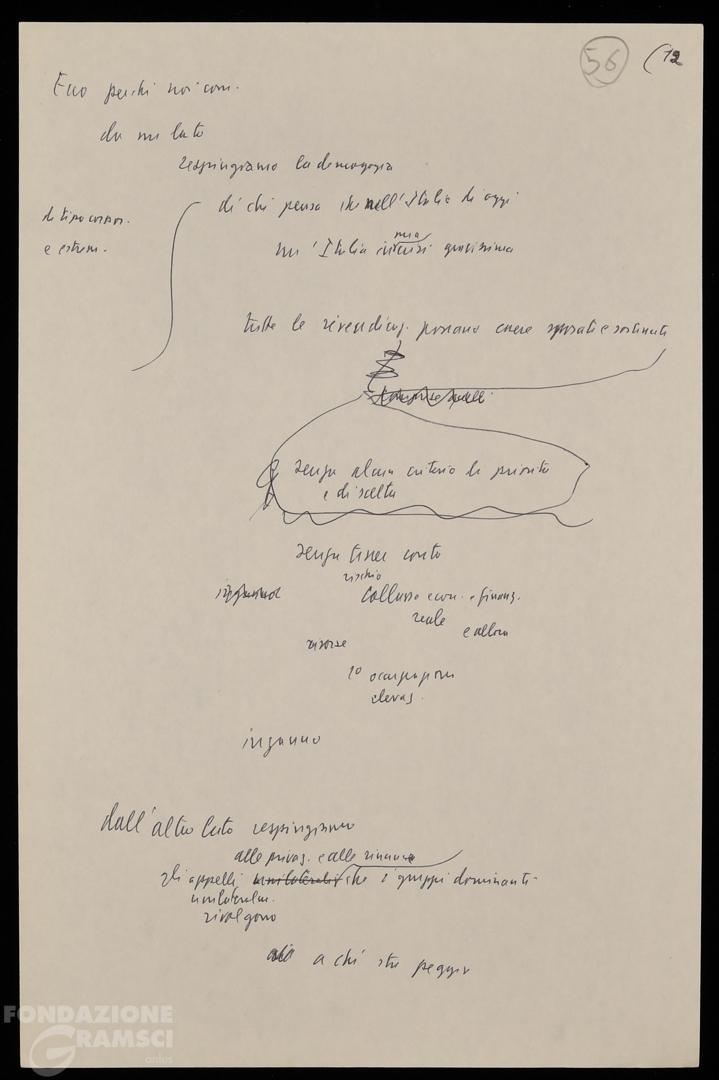 56 (12
Ecco perché noi com.
da un lato
respingiamo la demagogia
di tipo corpor.
e estrem.
di chi pensa che nell'Italia di oggi
un'Italia in crisi gravissima
tutte le rivendicaz. possano essere sposate e sostenute
senza alcun criterio di priorità
e di scelta
senza tener conto
rischio
collasso econ. e finanz.
reale
e allora
risorse
1° occupazione
elevaz.
inganno
dall'altro lato respingiamo
alle privaz. e alle rinunce
gli appelli unilaterali che i gruppi dominanti
unilateralm.
rivolgono
a chi sta peggio
FONDAZIONE
GRAMSCI
onlus